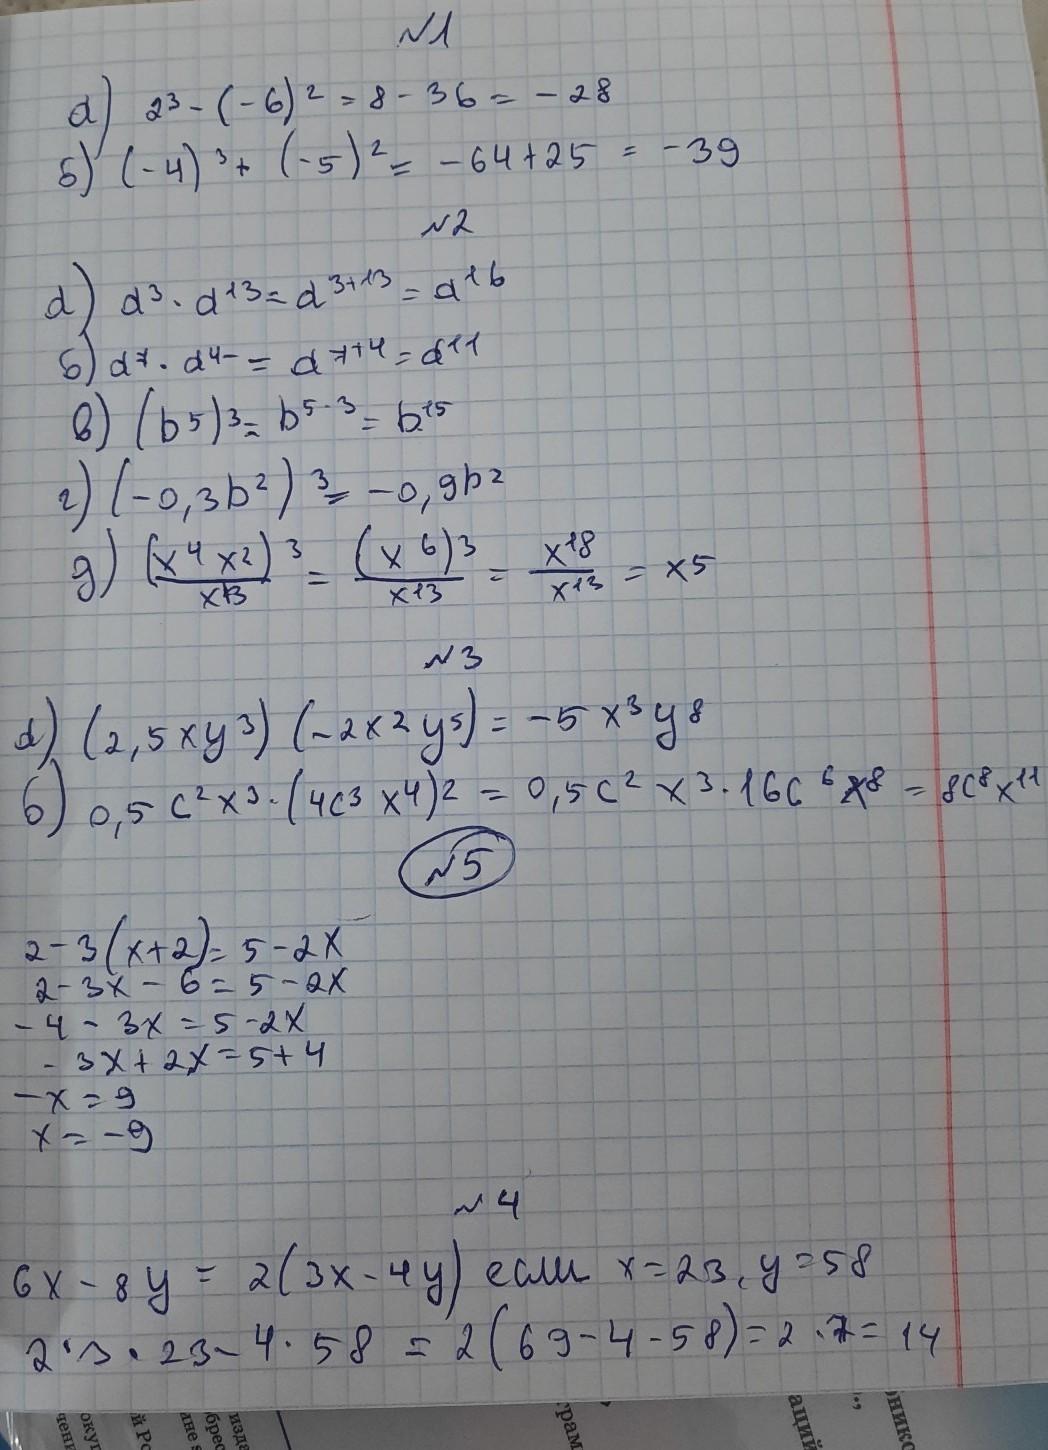 №1
а) 2³ - (-6)² = 8 - 36 = -28
б) (-4)³ + (-5)² = -64 + 25 = -39
№2
а) a³ · a¹³ = a³⁺¹³ = a¹⁶
б) a⁷ · a⁴ = a⁷⁺⁴ = a¹¹
в) (b⁵)³ = b⁵·³ = b¹⁵
г) (-0,3b²)³ = -0,9b²
д) (x⁴x²)³/x¹³ = (x⁶)³/x¹³ = x¹⁸/x¹³ = x⁵
№3
а) (2,5xy³) (-2x²y⁵) = -5x³y⁸
б) 0,5c²x³ · (4c³x⁴)² = 0,5c²x³ · 16c⁶x⁸ = 8c⁸x¹¹
№5
2 - 3(x+2) = 5 - 2x
2 - 3x - 6 = 5 - 2x
-4 - 3x = 5 - 2x
-3x + 2x = 5 + 4
-x = 9
x = -9
№4
6x - 8y = 2(3x - 4y) если x = 23, y = 58
2 · 3 · 23 - 4 · 58 = 2(69 - 4 - 58) = 2 · 7 = 14